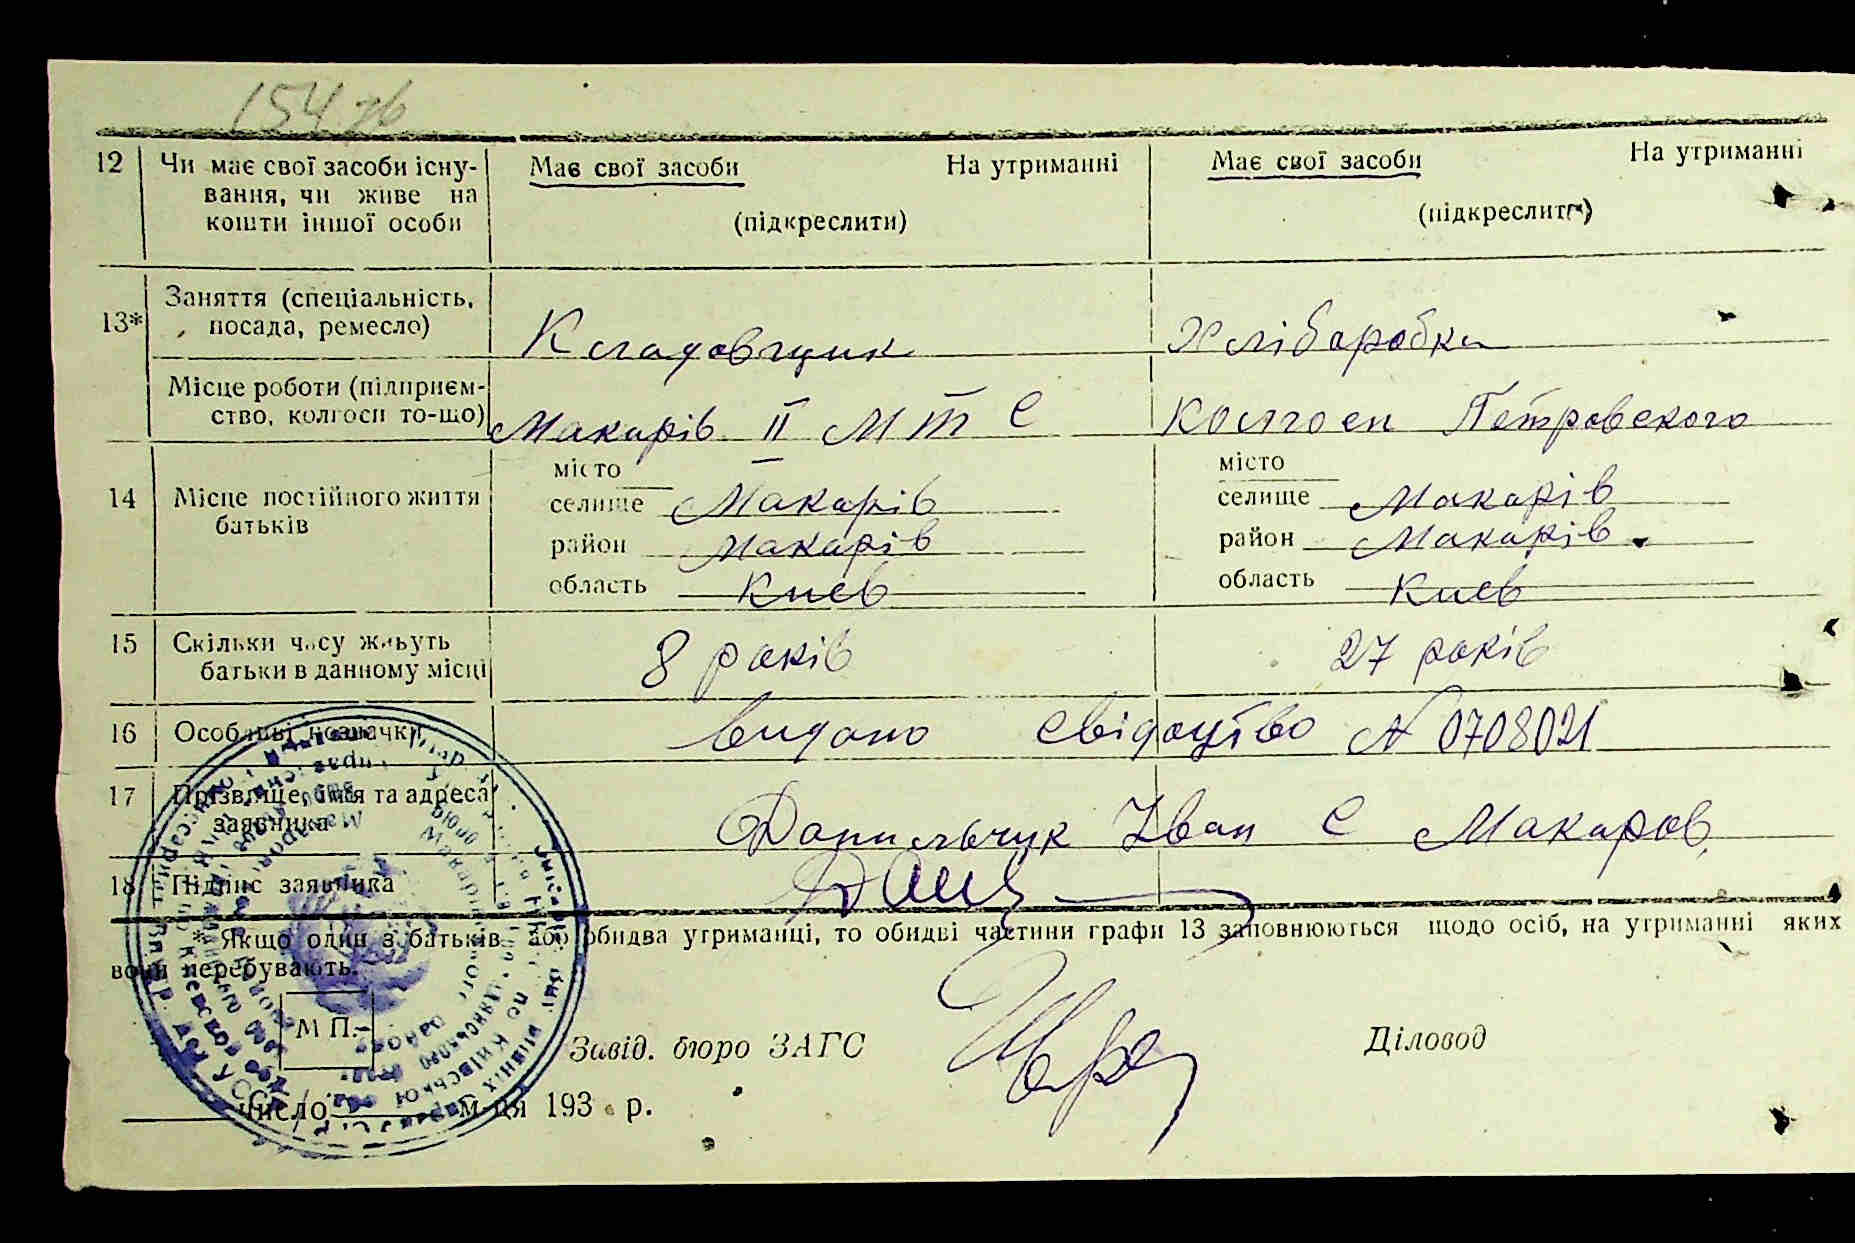 154 зв
12 Чи має свої засоби існу- Має свої засоби На утриманні Має свої засоби На утриманні
вання, чи живе на
кошти іншої особи (підкреслити) (підкреслити)
13* Заняття (спеціальність,
посада, ремесло) Кладовщик Хліборобка
Місце роботи (підприєм-
ство, колгосп то-що) Макарів II МТС Колгосп Петровского
14 Місце постійного життя
батьків
місто місто
селище Макарів селище Макарів
район Макарів район Макарів
область Киев область Киев
15 Скільки часу живуть
батьки в данному місці 8 років 27 років
16 Особливі позначки видано свідоцтво N 0708021
17 Прізвище, ім'я та адреса
заявника Данильчук Іван с Макаров
18 Підпис заявника
* Якщо один з батьків або обидва утриманці, то обидві частини графи 13 заповнюються щодо осіб, на утриманні яких
вони перебувають.
М П.
Завід. бюро ЗАГС Діловод
число м-ця 193 р.